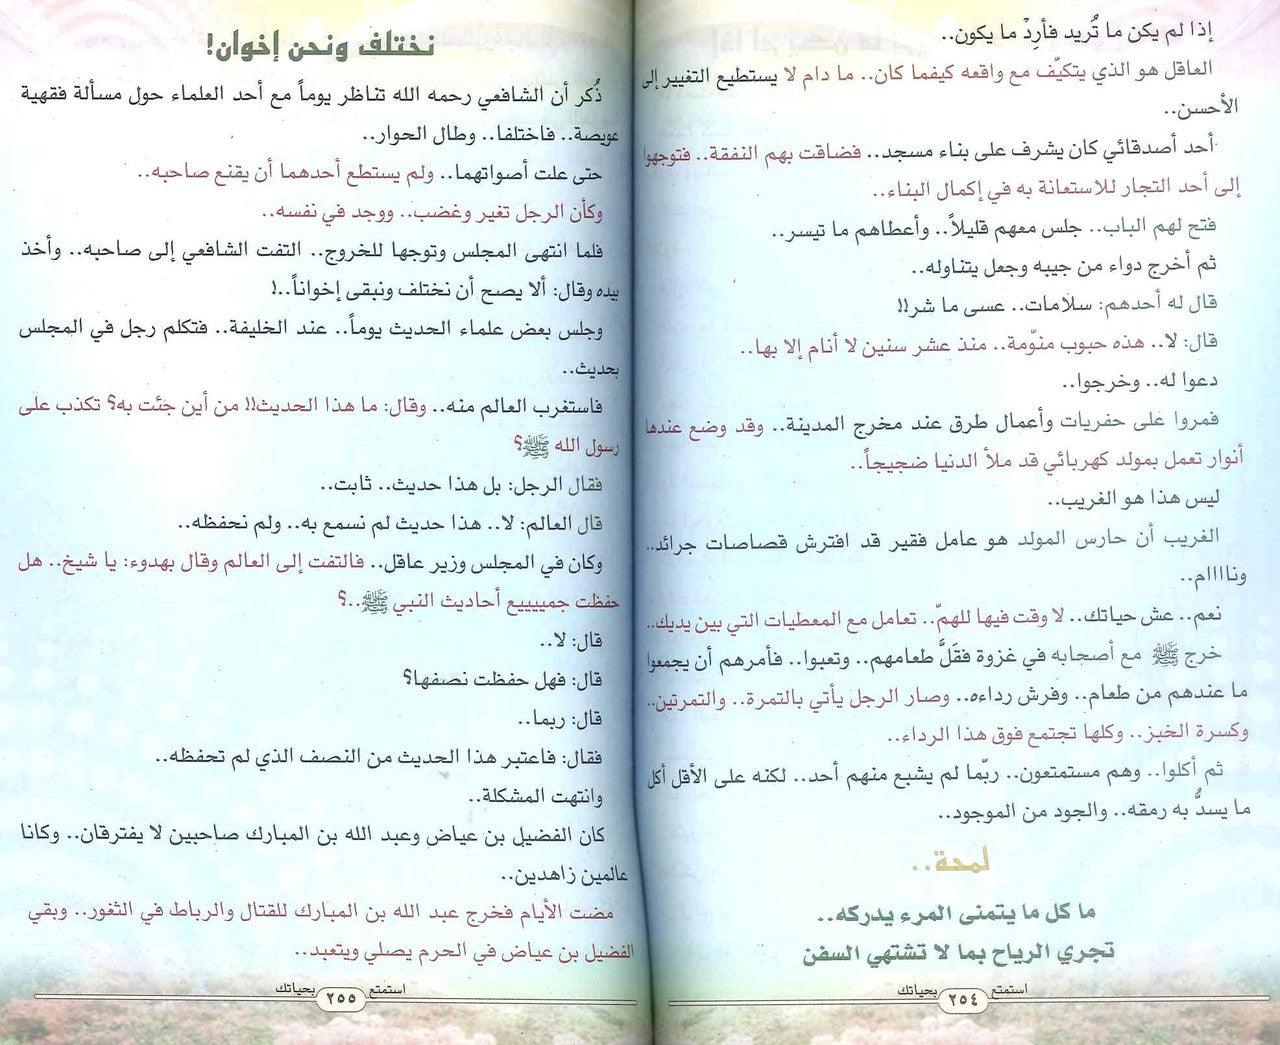 إذا لم يكن ما تُريد فأردْ ما يكون..
العاقل هو الذي يتكيّف مع واقعه كيفما كان.. ما دام لا يستطيع التغيير إلى
الأحسن..
أحد أصدقائي كان يشرف على بناء مسجد.. فضاقت بهم النفقة.. فتوجهوا
إلى أحد التجار للاستعانة به في إكمال البناء..
فتح لهم الباب.. جلس معهم قليلاً.. وأعطاهم ما تيسر..
ثم أخرج دواء من جيبه وجعل يتناوله..
قال له أحدهم: سلامات.. عسى ما شر!!
قال: لا.. هذه حبوب منوّمة.. منذ عشر سنين لا أنام إلا بها..
دعوا له.. وخرجوا..
فمروا على حفريات وأعمال طرق عند مخرج المدينة.. وقد وضع عندها
أنوار تعمل بمولد كهربائي قد ملأ الدنيا ضجيجاً..
ليس هذا هو الغريب..
الغريب أن حارس المولد هو عامل فقير قد افترش قصاصات جرائد..
وناااام..
نعم.. عش حياتك.. لا وقت فيها للهمّ.. تعامل مع المعطيات التي بين يديك..
خرج ﷺ مع أصحابه في غزوة فقَلَّ طعامهم.. وتعبوا.. فأمرهم أن يجمعوا
ما عندهم من طعام.. وفرش رداءه.. وصار الرجل يأتي بالتمرة.. والتمرتين..
وكسرة الخبز.. وكلها تجتمع فوق هذا الرداء..
ثم أكلوا.. وهم مستمتعون.. ربّما لم يشبع منهم أحد.. لكنه على الأقل أكل
ما يسدُّ به رمقه.. والجود من الموجود..
لمحة..
ما كل ما يتمنى المرء يدركه..
تجري الرياح بما لا تشتهي السفن
استمتع ٢٥٤ بحياتك
نختلف ونحن إخوان!
ذُكر أن الشافعي رحمه الله تناظر يوماً مع أحد العلماء حول مسألة فقهية
عويصة.. فاختلفا.. وطال الحوار..
حتى علت أصواتهما.. ولم يستطع أحدهما أن يقنع صاحبه..
وكأن الرجل تغير وغضب.. ووجد في نفسه..
فلما انتهى المجلس وتوجها للخروج.. التفت الشافعي إلى صاحبه.. وأخذ
بيده وقال: ألا يصح أن نختلف ونبقى إخواناً..!
وجلس بعض علماء الحديث يوماً.. عند الخليفة.. فتكلم رجل في المجلس
بحديث..
فاستغرب العالم منه.. وقال: ما هذا الحديث!! من أين جئت به؟ تكذب على
رسول الله ﷺ؟
فقال الرجل: بل هذا حديث.. ثابت..
قال العالم: لا.. هذا حديث لم نسمع به.. ولم نحفظه..
وكان في المجلس وزير عاقل.. فالتفت إلى العالم وقال بهدوء: يا شيخ.. هل
حفظت جميييع أحاديث النبي ﷺ..؟
قال: لا..
قال: فهل حفظت نصفها؟
قال: ربما..
فقال: فاعتبر هذا الحديث من النصف الذي لم تحفظه..
وانتهت المشكلة..
كان الفضيل بن عياض وعبد الله بن المبارك صاحبين لا يفترقان.. وكانا
عالمين زاهدين..
مضت الأيام فخرج عبد الله بن المبارك للقتال والرباط في الثغور.. وبقي
الفضيل بن عياض في الحرم يصلي ويتعبد..
استمتع ٢٥٥ بحياتك